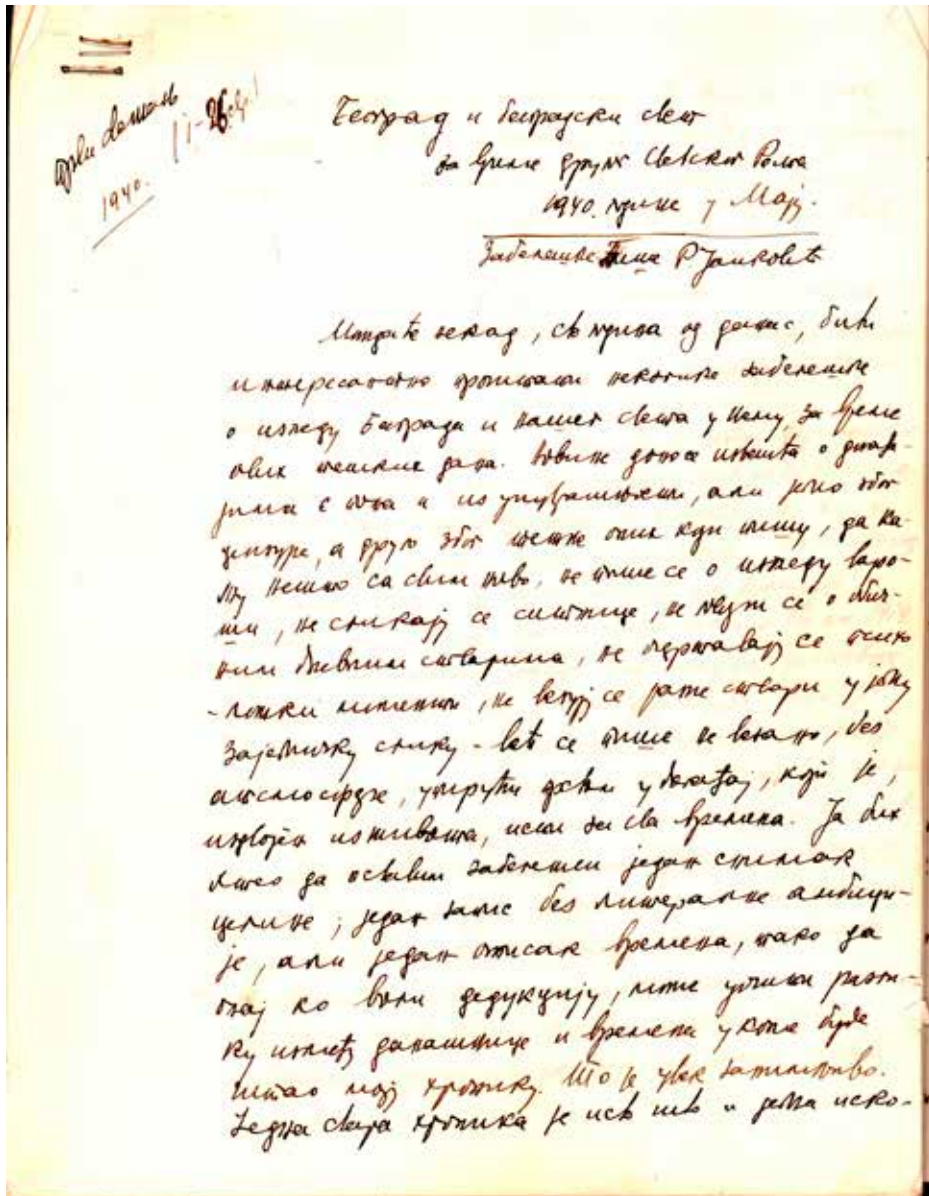 1940.
Београд и београдски свет
за време другог Светског Рата
1940. године у Мају.
Забелешке Р. Јанковић
Можда ће некад, сто година од данас, бити
интересантно прочитати неколике забелешке
о изгледу Београда и нашег света у њему, за време
ових тешких дана. Новине доносе извешћа о догађа-
јима с поља и из унутрашњости, али једно због
цензуре, а друго због жеље оних који пишу, да ка-
жу нешто са свим ново, не пише се о изгледу варо-
ши, не сликају се ситнице, не говори се о обич-
ним дневним стварима, не одржавају се психо
-лошки моменти, не везују се разне ствари у једну
заједничку слику - већ се пише не везано, без
атмосфере, у догађај, који је,
издвојен из живота, исти за сва времена. Ја бих
хтео да оставим забележен један снимак
целине, један запис без литерарне амбици-
је, али један отисак времена, тако да
онај ко воли дедукцију, може учинити разли-
ку између данашњице и времена у коме буде
читао моју хронику. То је увек занимљиво.
Једна стара хроника је исто што и једна иско-